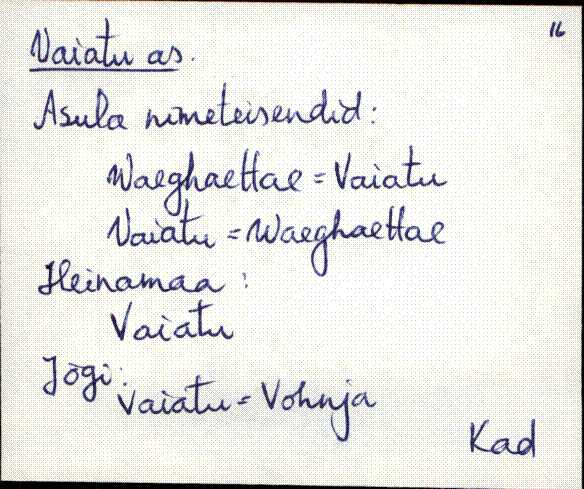 16
Vaiatu as.
Asula nimeteisendid:
Waeghaettae = Vaiatu
Vaiatu = Waeghaettae
Heinamaa :
Vaiatu
Jõgi:
Vaiatu = Vohnja
Kad